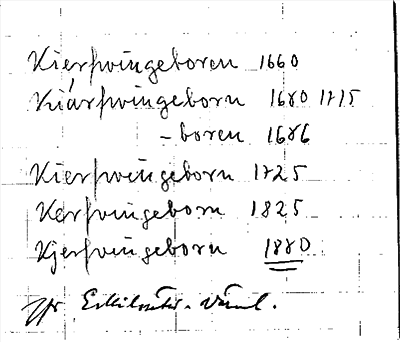 Kierswingeboren 1660
Kiárswingeborn 1680 1715
-boren 1686
Kierswingeborn 1725
Kerswingeborn 1825
Kjerswingeborn 1880